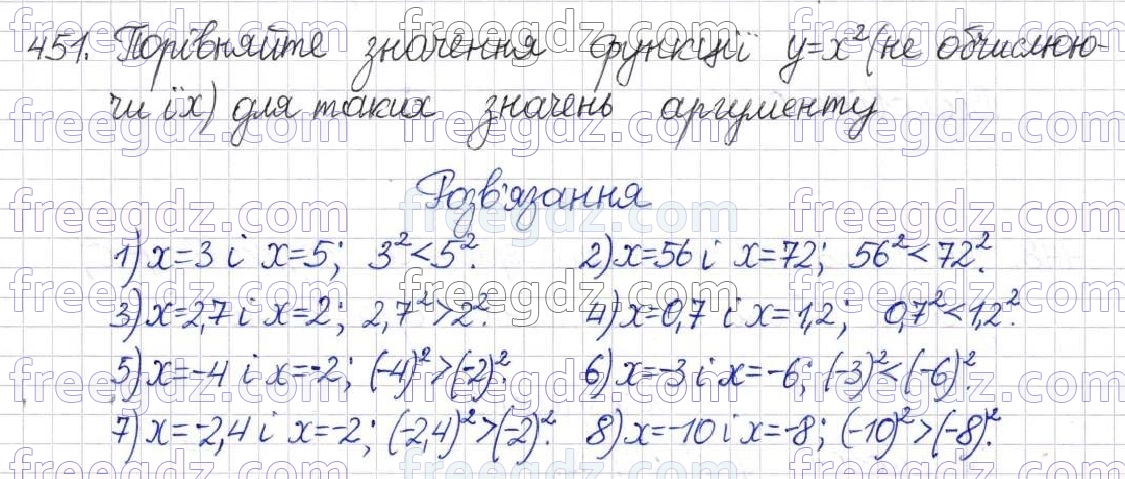 451. Порівняйте значення функції y=x² (не обчислюю-
чи їх) для таких значень аргументу
Розв'язання
1) x=3 і x=5; 3²<5². 2) x=56 і x=72; 56²<72².
3) x=2,7 і x=2; 2,7²>2². 4) x=0,7 і x=1,2; 0,7²<1,2².
5) x=-4 і x=-2; (-4)²>(-2)². 6) x=-3 і x=-6; (-3)²<(-6)².
7) x=-2,4 і x=-2; (-2,4)²>(-2)². 8) x=-10 і x=-8; (-10)²>(-8)².
freegdz.com